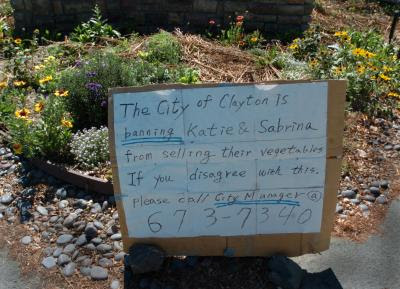 The City of Clayton is
banning Katie & Sabrina
from selling their vegetables
If you disagree with this,
please call City Manager @
673-7340